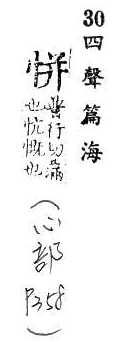 30四聲篇海
恲
普行切滿
也忼慨也
（心部
P358）